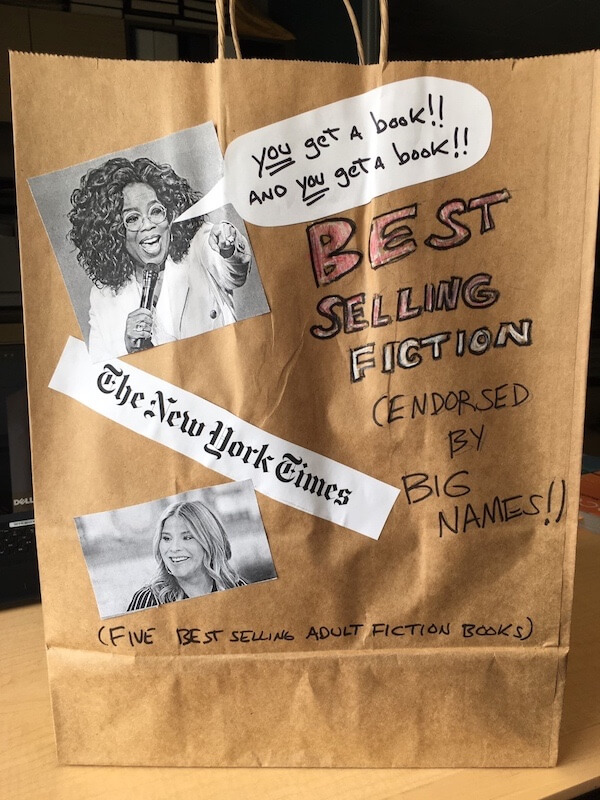 YOU get A book!!
AND YOU get A book!!
BEST
SELLING
FICTION
(ENDORSED
BY
BIG
NAMES!)
The New York Times
(FIVE BEST SELLING ADULT FICTION BOOKS)
DELL